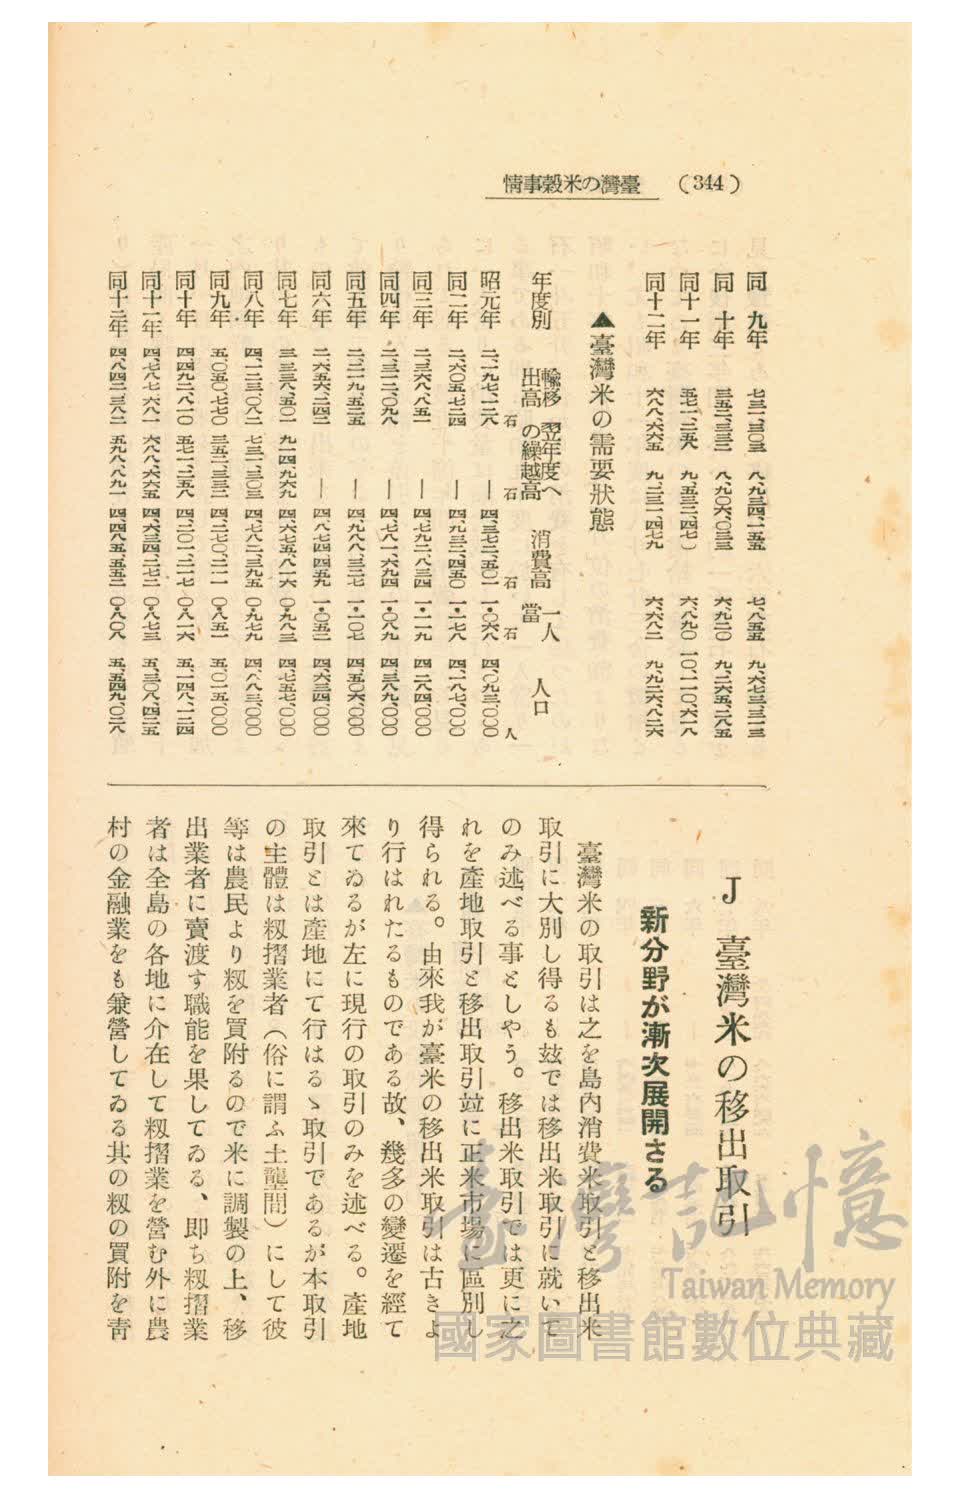 (344)
臺灣の米穀事情
同 九年 七三一、三〇三 八、九三四、一五五 七、八五五 九、六七三、三一三
同 十年 三五二、三三二 八、九〇六、〇三三 六、九二〇 九、二六五、二八五
同十一年 五七一、二五八 九、五三三、四七) 六、八九〇 一〇、一一〇、六一八
同十二年 六八八、六六五 九、二三一、四七九 六、六八二 九、九二六、八二六
▲臺灣米の需要狀態
年度別 輸移出高 翌年度への繰越高 消費高 一人當 人口
石 石 石 石 人
昭元年 二、一九七、一二八 — 四、三七二、五〇一 一・〇六八 四、〇九三、〇〇〇
同二年 二、六〇五、七二四 — 四、九三三、四五〇 一・一七八 四、一八七、〇〇〇
同三年 二、三六八、八五一 — 四、七九二、八三四 一・一一九 四、二八四、〇〇〇
同四年 二、三一二、〇九八 — 四、七八一、六九四 一・〇八九 四、三八九、〇〇〇
同五年 二、二一九、五二五 — 四、九八八、三二七 一・一〇七 四、五〇六、〇〇〇
同六年 二、六五六、二四二 — 四、八七四、四五九 一・〇五二 四、六三四、〇〇〇
同七年 三、三三八、五〇一 九一四、九六九 四、六七五、八一六 〇・九八三 四、七五七、〇〇〇
同八年 四、一二三、〇八二 七三一、三〇三 四、七八二、三九五 〇・九七九 四、八八三、〇〇〇
同九年 五、〇五〇、七七〇 三五二、三三二 四、二七〇、二一一 〇・八五一 五、〇一五、〇〇〇
同十年 四、四九二、八一〇 五七一、二五八 四、二〇一、二一七 〇・八一六 五、一四八、一二四
同十一年 四、七八七、六八一 六八八、六六五 四、六三四、二七二 〇・八七三 五、三〇八、四二五
同十二年 四、八四二、三八二 五九八、八九一 四、四八五、五五二 〇・八〇八 五、五四九、〇二八
J 臺灣米の移出取引
新分野が漸次展開さる
臺灣米の取引は之を島內消費米取引と移出米
取引に大別し得るも玆では移出米取引に就いて
のみ述べる事としやう。移出米取引では更に之
れを產地取引と移出取引竝に正米市場に區別し
得られる。由來我が臺米の移出米取引は古きよ
り行はれたるものである故、幾多の變遷を經て
來てゐるが左に現行の取引のみを述べる。產地
取引とは產地にて行はるゝ取引であるが本取引
の主體は籾摺業者(俗に謂ふ土壟間)にして彼
等は農民より籾を買附るので米に調製の上、移
出業者に賣渡す職能を果してゐる、即ち籾摺業
者は全島の各地に介在して籾摺業を營む外に農
村の金融業をも兼營してゐる其の籾の買附を靑
臺灣記憶
Taiwan Memory
國家圖書館數位典藏